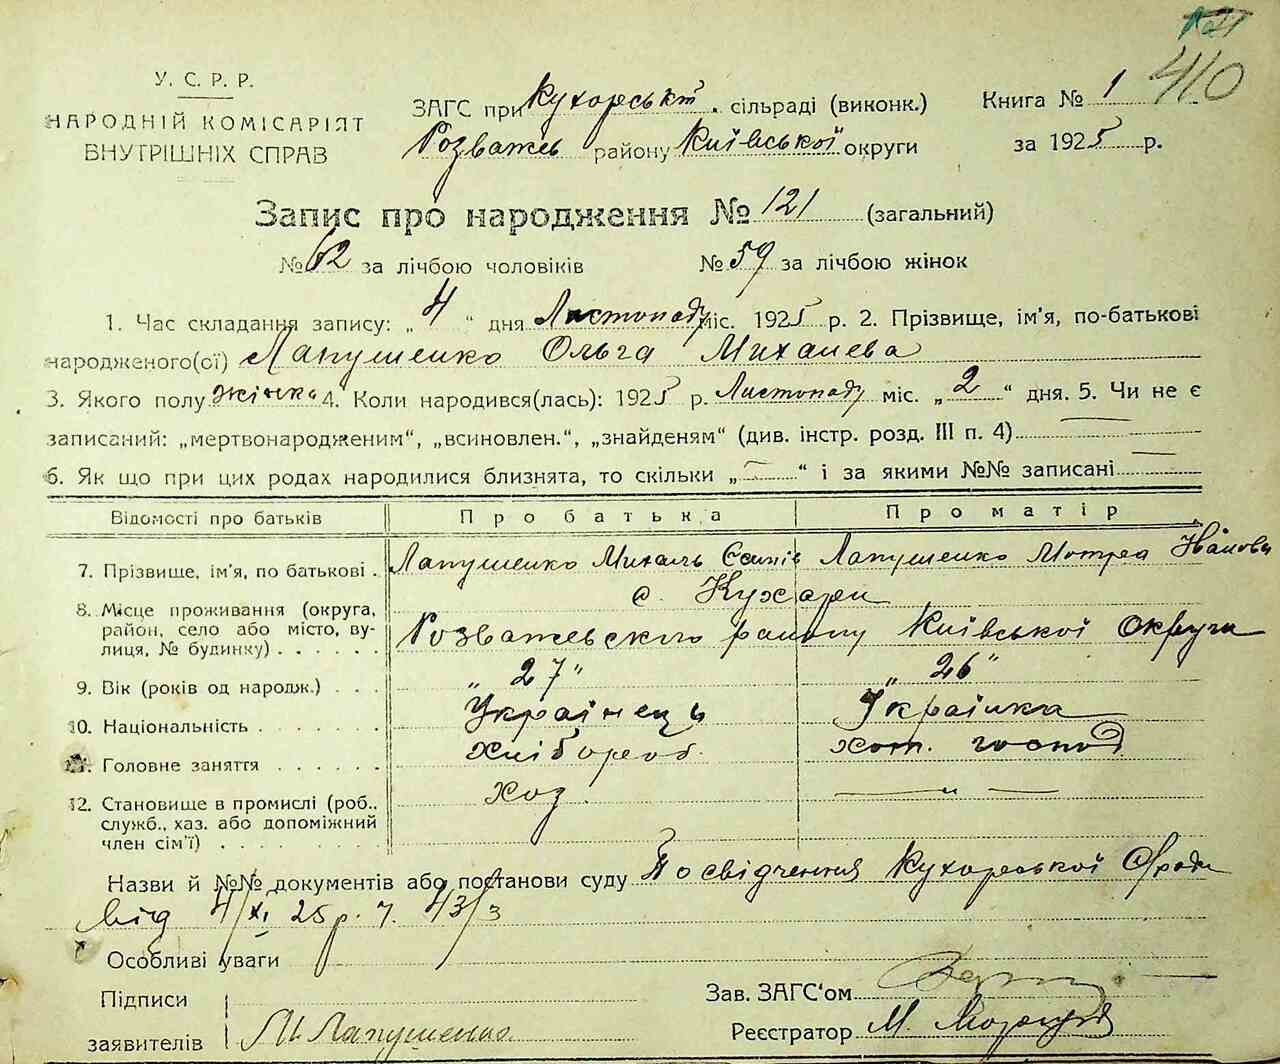 410
У. С. Р. Р.
НАРОДНІЙ КОМІСАРІЯТ
ВНУТРІШНІХ СПРАВ
ЗАГС при Кухарськ. сільраді (виконк.)
Книга № 1
Розважев району Київської округи
за 1925 р.
Запис про народження № 121 (загальний)
№ 62 за лічбою чоловіків № 59 за лічбою жінок
1. Час складання запису: „ 4 “ дня Листопаду міс. 1925 р. 2. Прізвище, ім'я, по-батькові
народженого(ої) Лапушенко Ольга Михалева
3. Якого полу жінка 4. Коли народився(лась): 1925 р. Листопаду міс. „ 2 “ дня. 5. Чи не є
записаний: „мертвонародженим“, „всиновлен.“, „знайденям“ (див. інстр. розд. III п. 4) —
6. Як що при цих родах народилися близнята, то скільки „ — “ і за якими №№ записані —
Відомості про батьків Про батька Про матір
7. Прізвище, ім'я, по батькові . Лапушенко Михаль Єсипів Лапушенко Мотреа Іванова
8. Місце проживання (округа, с. Кухари
район, село або місто, ву- Розважевского району Київської Округи
лиця, № будинку) . . . . . .
9. Вік (років од народж.) . . . „ 27 “ „ 26 “
10. Національність . . . . . . . Українець Українка
11. Головне заняття . . . . . . хлібороб. хат. господ
12. Становище в промислі (роб., хоз. — „ —
служб., хаз. або допоміжний
член сім'ї) . . . . . . . . .
Назви й №№ документів або постанови суду Посвідчення Кухарської С/ради
від 4/XI 25 р. ч. 43/3
Особливі уваги
Підписи
заявителів М. Лапушенко
Зав. ЗАГС'ом
Реєстратор М.